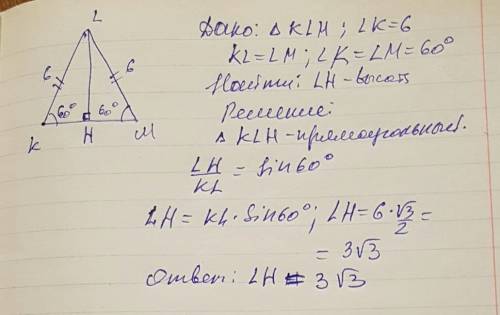 L
6 6
60° 60°
K H M
Дано: △KLH; LK=6
KL=LM; ∠K=∠M=60°
Найти: LH-высоту
Решение:
△KLH-прямоугольный.
LH/KL = Sin60°
LH = KL·Sin60°; LH=6·√3/2=
= 3√3
Ответ: LH = 3√3